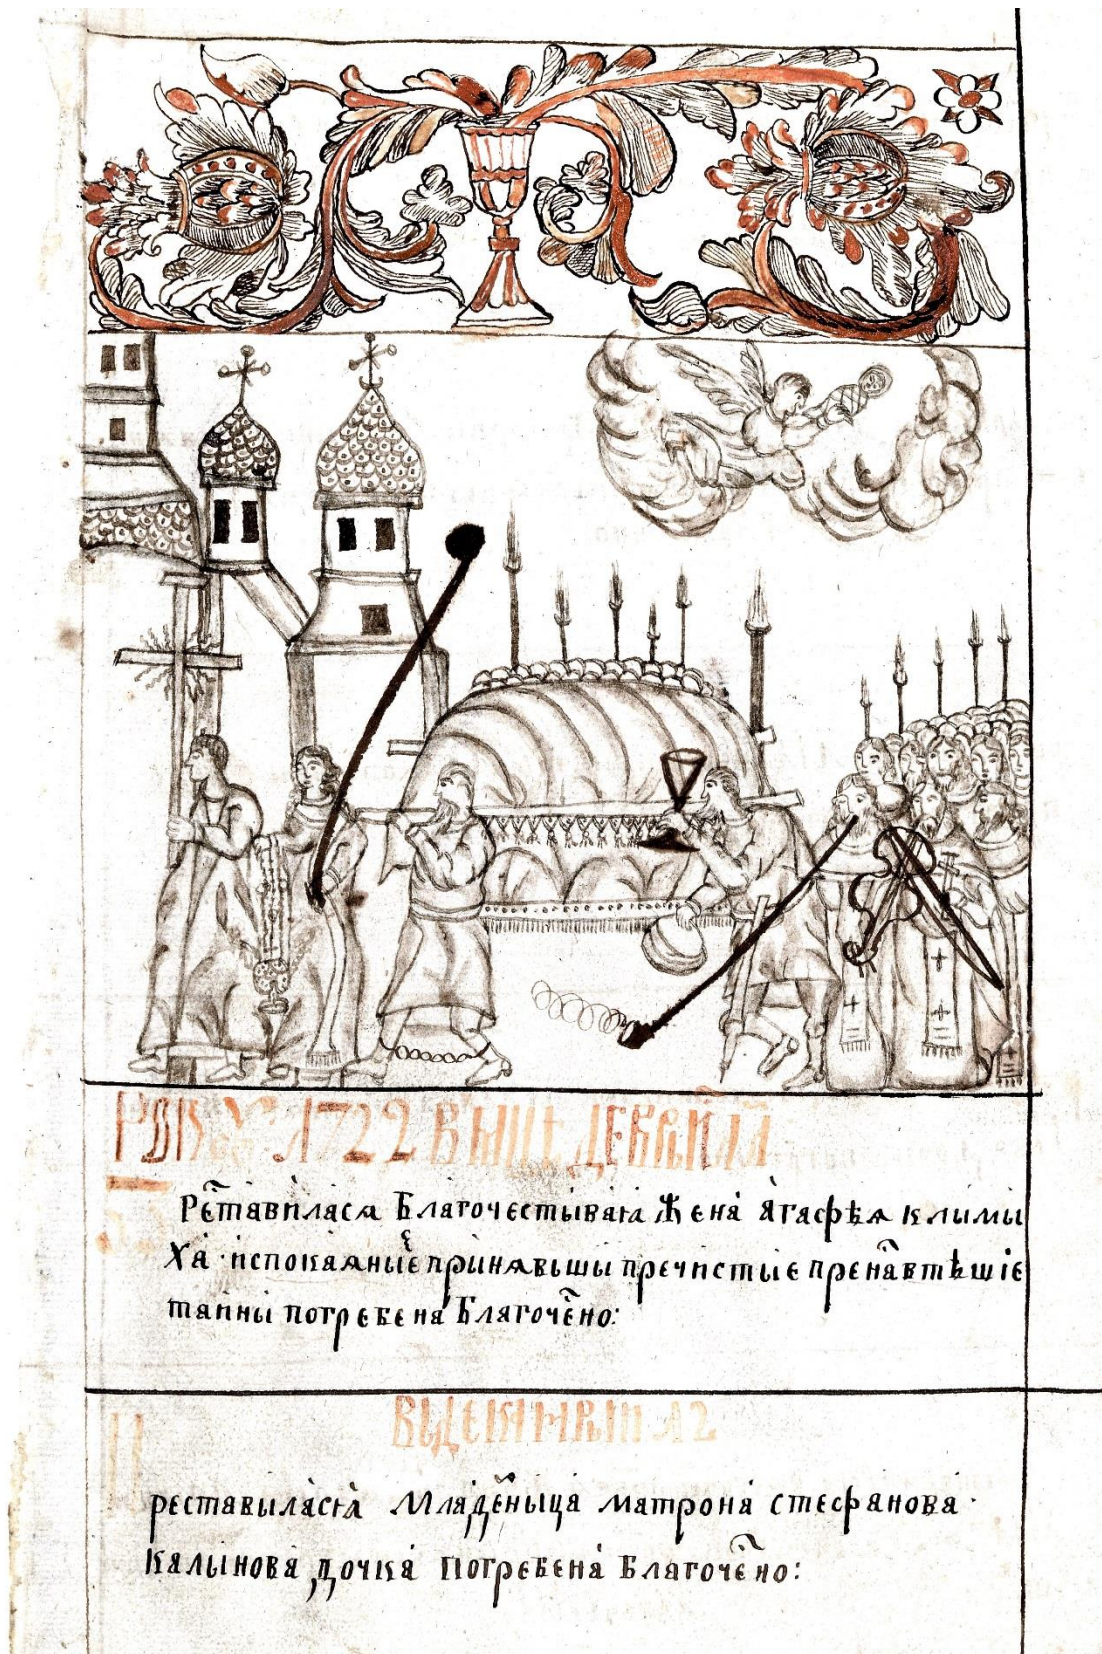 Року 1722
Рес̑тавиласѧ Благочестываꙗ Жена Агафѣѧ клымы
Ха испокаѧныем принѧвьшы пречистые пренавтѣшіе
таины погребена Благоче̑но:
В декамврии 12
реставыласꙗ Младеныца матрона стефанова
калынова дочка погребена Благоче̑но: